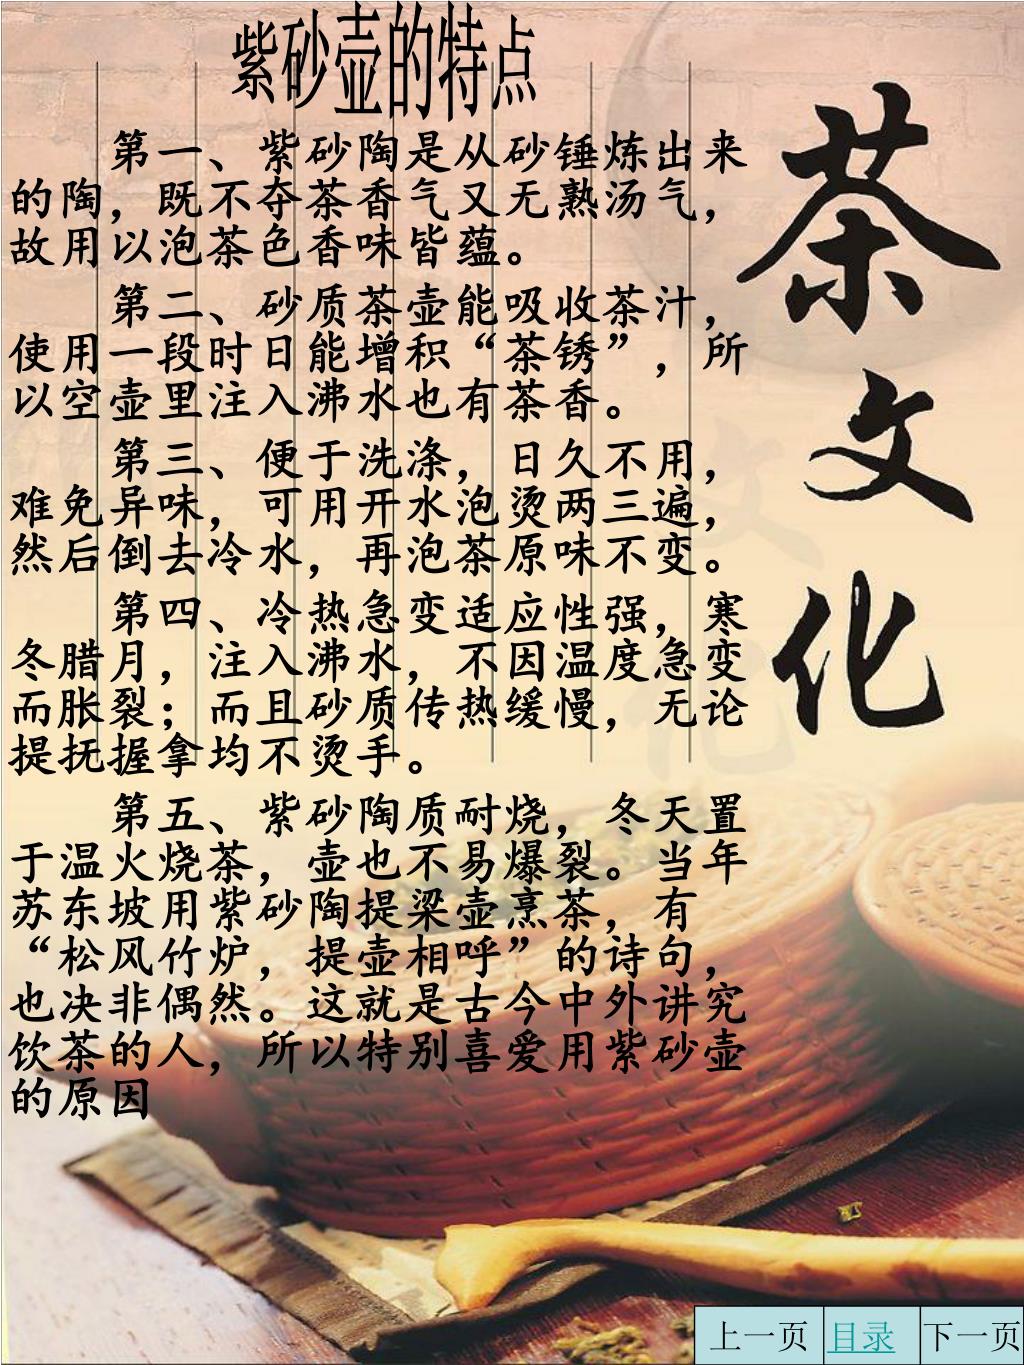 紫砂壶的特点
第一、紫砂陶是从砂锤炼出来
的陶，既不夺茶香气又无熟汤气，
故用以泡茶色香味皆蕴。
第二、砂质茶壶能吸收茶汁，
使用一段时日能增积“茶锈”，所
以空壶里注入沸水也有茶香。
第三、便于洗涤，日久不用，
难免异味，可用开水泡烫两三遍，
然后倒去冷水，再泡茶原味不变。
第四、冷热急变适应性强，寒
冬腊月，注入沸水，不因温度急变
而胀裂；而且砂质传热缓慢，无论
提抚握拿均不烫手。
第五、紫砂陶质耐烧，冬天置
于温火烧茶，壶也不易爆裂。当年
苏东坡用紫砂陶提梁壶烹茶，有
“松风竹炉，提壶相呼”的诗句，
也决非偶然。这就是古今中外讲究
饮茶的人，所以特别喜爱用紫砂壶
的原因
茶文化
上一页 目录 下一页